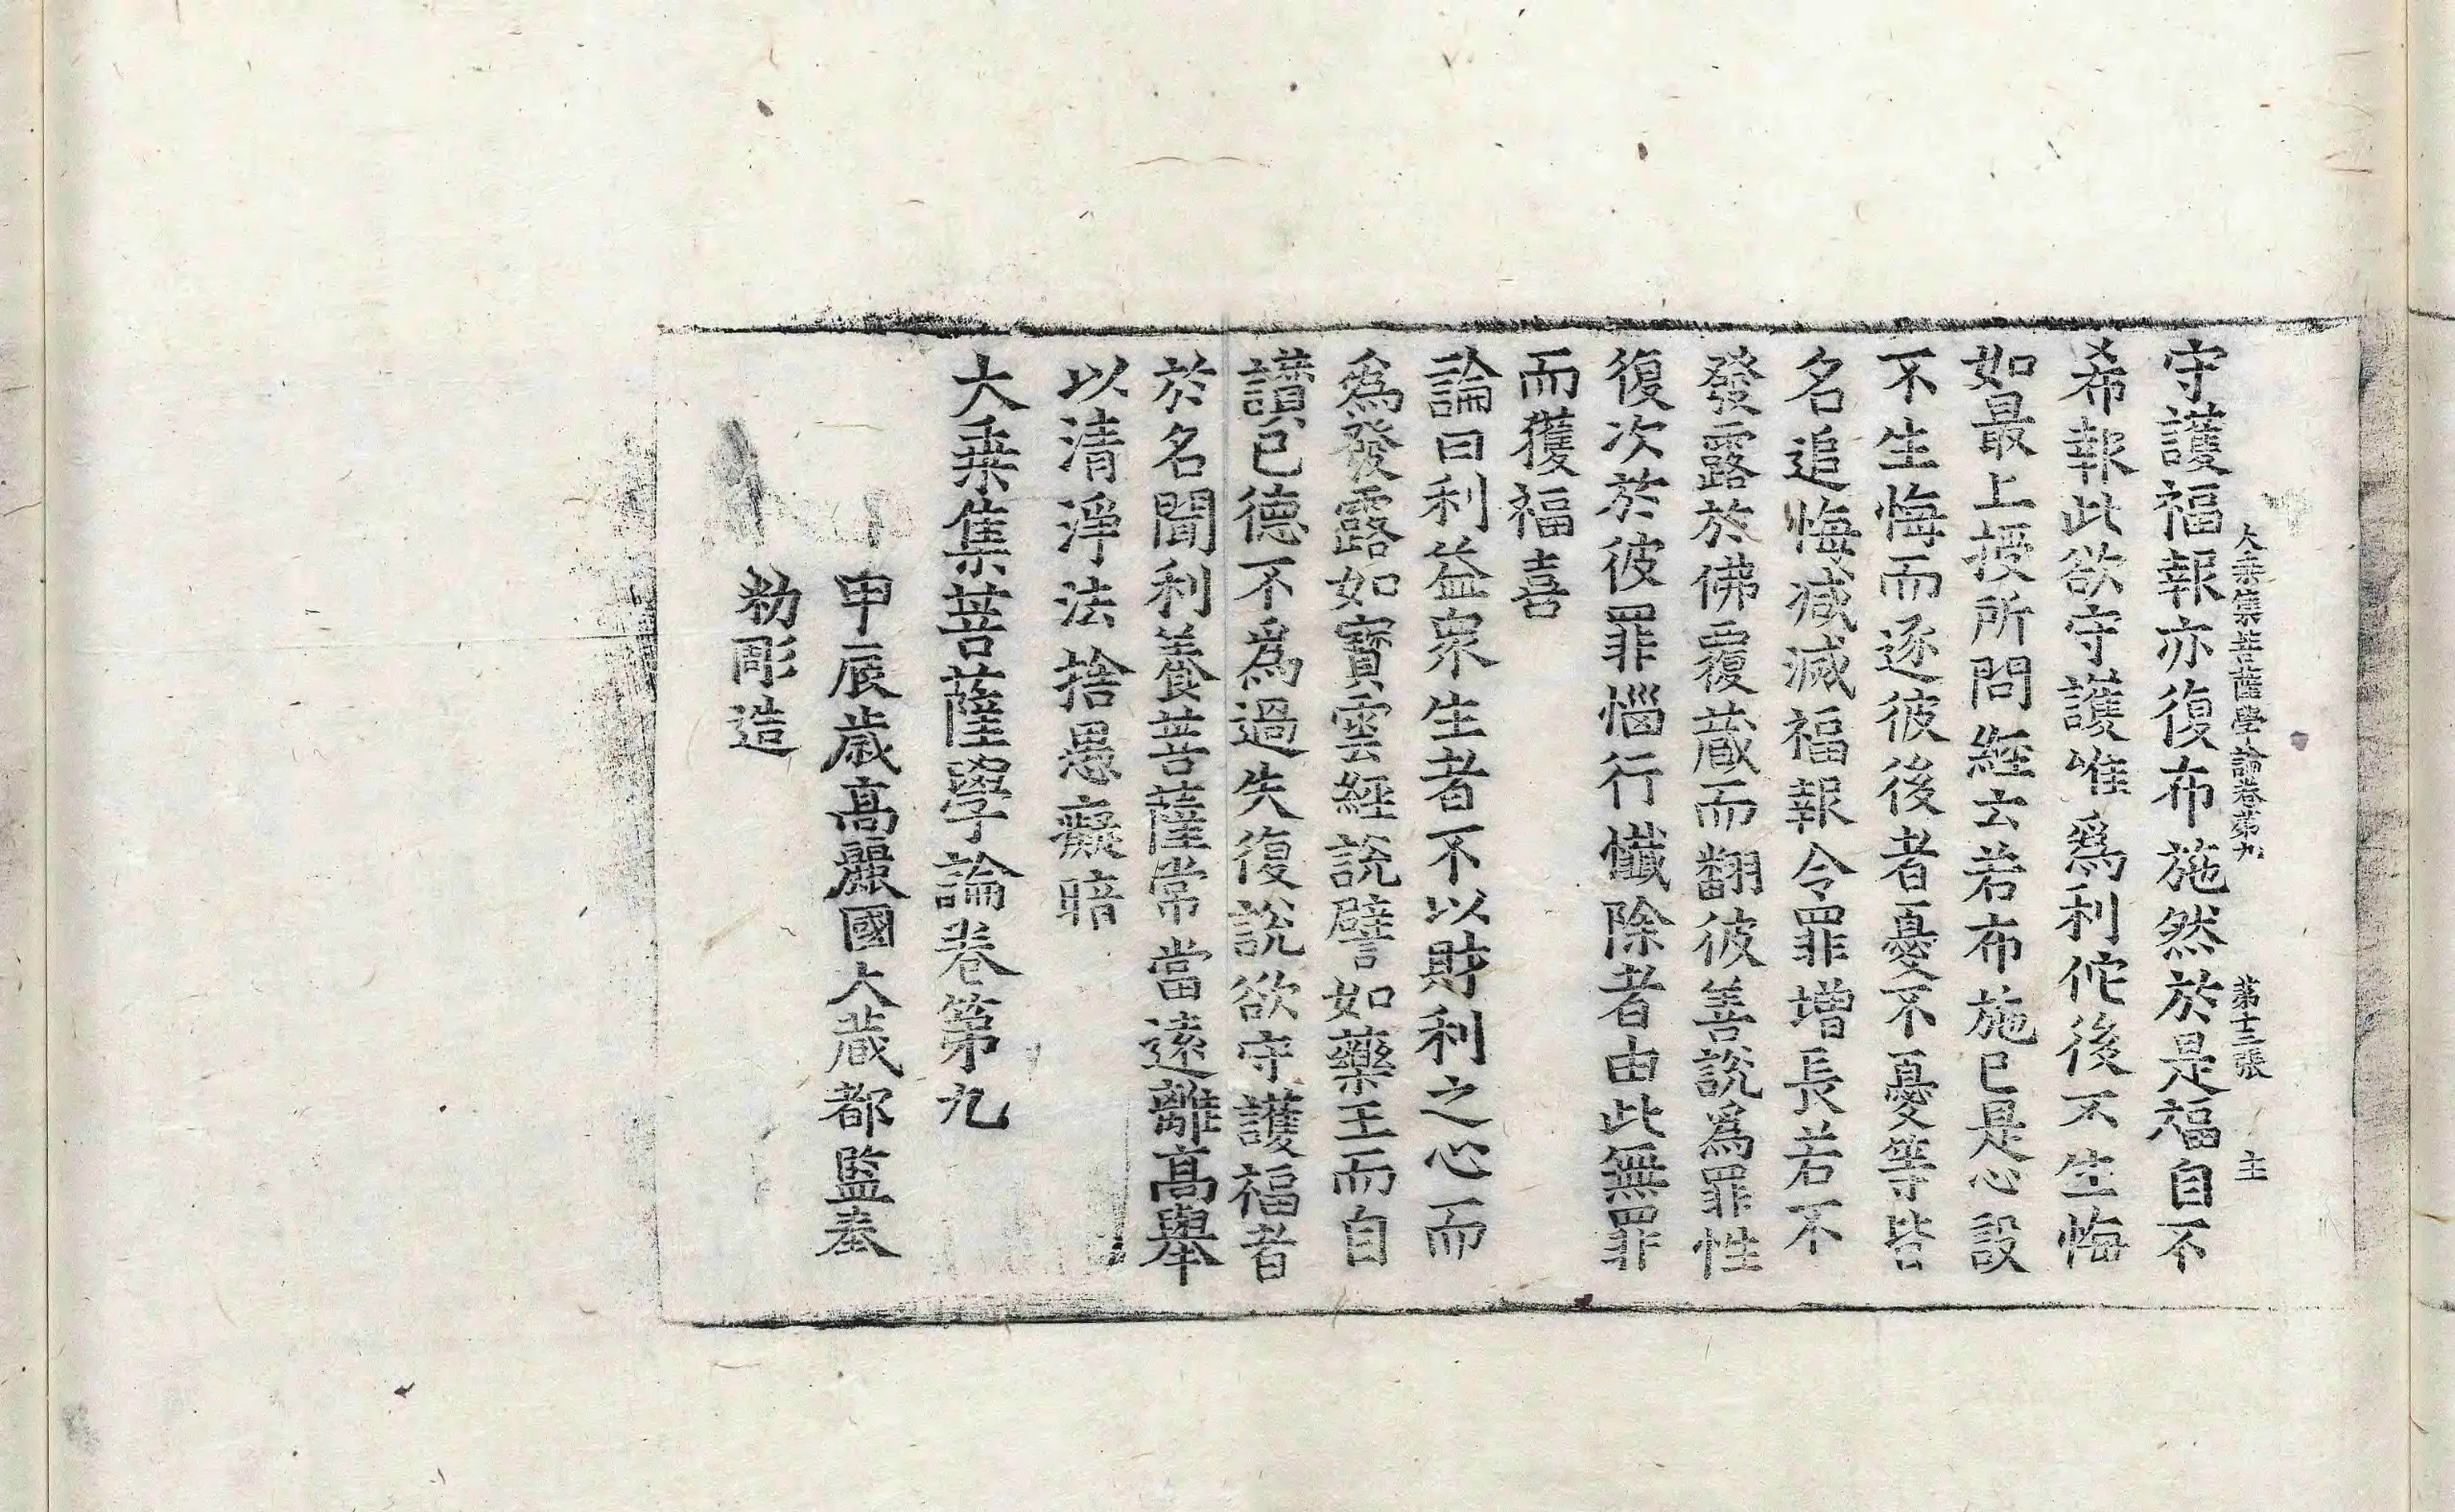 大乗集菩薩學論卷第九 第十三張 主
守護福報亦復布施然於是福自不
希報此欲守護唯爲利佗後不生悔
如最上授所問經云若布施已是心設
不生悔而逐彼後者憂不憂等皆
名追悔減減福報令罪增長若不
發露於佛覆蔵而翻彼善說爲罪性
復次於彼罪惱行懺除者由此無罪
而獲福喜
論曰利益衆生者不以財利之心而
爲發露如寶雲經說譬如藥王而自
讃已德不爲過失復說欲守護福者
於名聞利養菩薩常當遠離高舉
以清淨法捨愚癡暗
大乗集菩薩學論卷第九
甲辰歳高麗國大蔵都監奉
勑彫造